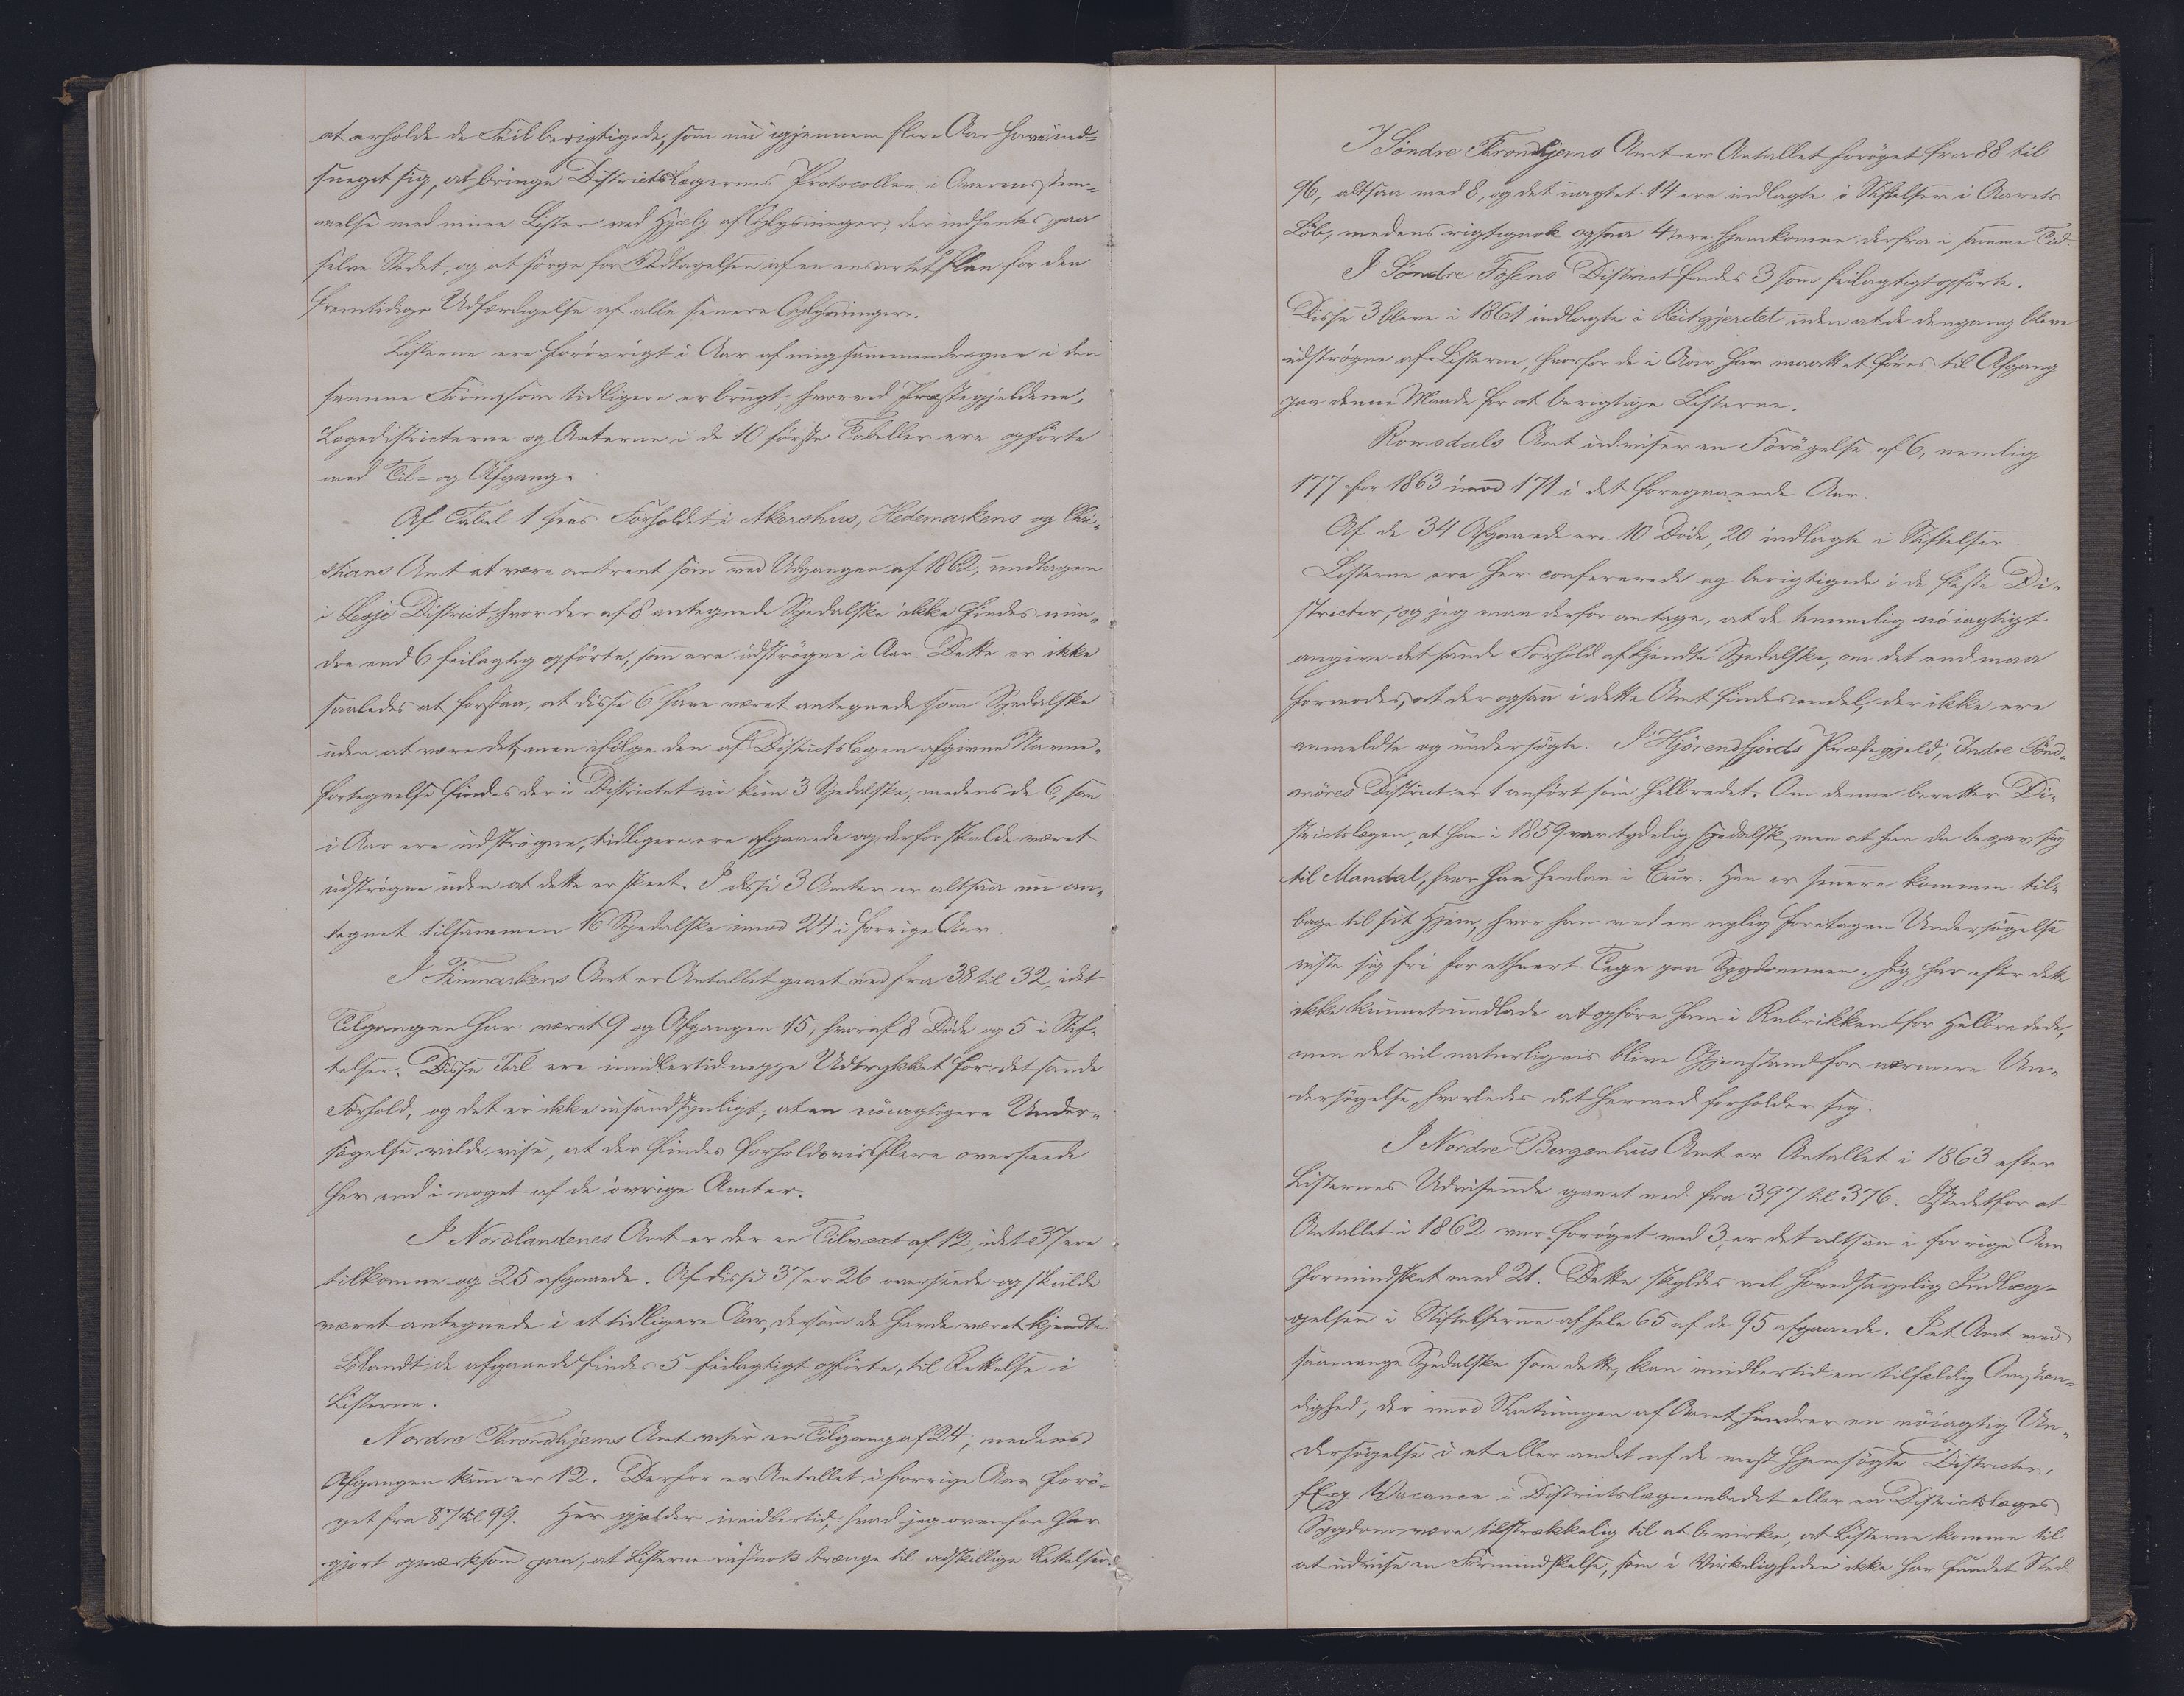 at erholde de Feil berigtigede, som nu igjennem flere Aar have ind-
sneget sig, at bringe Districtslægernes Protocoller i Overensstem-
melse med mine Lister ved Hjælp af Oplysninger, der indhentes paa
selve Stedet, og at sørge for Vedtagelsen af en ensartet Plan for den
fremtidige Udfærdigelse af alle senere Oplysninger.
Listerne ere forøvrigt i Aar af mig sammendragne i den
samme Form, som tidligere er brugt, hvorved Præstegjeldene,
Lægedistricterne og Amterne i de 10 første Tabeller ere opførte
med Til- og Afgang.
Af Tabel 1 sees Forholdet i Akershus, Hedemarkens og Chri-
stians Amt at være omtrent som ved Udgangen af 1862, undtagen
i Lesje District, hvor der af 8 antegnede Spedalske ikke findes min-
dre end 6 feilagtig opførte, som ere udstrøgne i Aar. Dette er ikke
saaledes at forstaa, at disse 6 have været antegnede som Spedalske
uden at være det, men ifølge den af Districtslægen afgivne Navne-
fortegnelse findes der i Districtet nu kun 3 Spedalske, medens de 6, som
i Aar ere udstrøgne, tidligere ere afgaaede og derfor skulde været
udstrøgne uden at dette er skeet. I disse 3 Amter er altsaa nu an-
tegnet tilsammen 16 Spedalske imod 24 i forrige Aar.
I Finmarkens Amt er Antallet gaaet ned fra 38 til 32, idet
Tilgangen har været 9 og Afgangen 15, hvoraf 8 Døde og 5 i Stif-
telser. Disse Tal ere imidlertid neppe Udtrykket for det sande
Forhold, og det er ikke usandsynligt, at en nöiagtigere Under-
søgelse vilde vise, at der findes forholdsvis flere overseede
her end i noget af de øvrige Amter.
I Nordlandenes Amt er der en Tilvæxt af 12, idet 37 ere
tilkomne og 25 afgaaede. Af disse 37 er 26 overseede og skulde
været antegnede i et tidligere Aar, dersom de havde været kjendte.
Blandt de afgaaede findes 5 feilagtigt opførte, til Rettelse i
Listerne.
Nordre Throndhjems Amt viser en Tilgang af 24, medens
Afgangen kun er 12. Derfor er Antallet i forrige Aar forø-
get fra 87 til 99. Her gjælder imidlertid, hvad jeg ovenfor har
gjort opmærksom paa, at Listerne vistnok trænge til adskillige Rettelser.
I Söndre Throndhjems Amt er Antallet forøget fra 88 til
96, altsaa med 8, og det uagtet 14 ere indlagte i Stiftelser i Aarets
Løb, medens rigtignok ogsaa 4 ere hjemkomne derfra i samme Tid.
I Söndre Fosens District findes 3 som feilagtigt opførte.
Disse 3 bleve i 1861 indlagte i Reitgjerdet uden at de dengang bleve
udstrøgne af Listerne, hvorfor de i Aar har maattet føres til Afgang
paa denne Maade for at berigtige Listerne.
Romsdals Amt udviser en Forøgelse af 6, nemlig
177 for 1863 imod 171 i det foregaaende Aar.
Af de 34 Afgaaede ere 10 Døde, 20 indlagte i Stiftelser.
Listerne ere her confererede og berigtigede i de fleste Di-
stricter, og jeg maa derfor antage, at de temmelig nöiagtigt
angive det sande Forhold af kjendte Spedalske, om det end maa
formodes, at der ogsaa i dette Amt findes endel, der ikke ere
anmeldte og undersøgte. I Hjörendfjords Præstegjeld, Indre Sönd-
möres District er 1 anført som helbredet. Om denne beretter Di-
strictslægen, at han i 1859 var tydelig spedalsk, men at han da begav sig
til Mandal, hvor han henlaa i Cur. Han er senere kommen til-
bage til sit Hjem, hvor han ved en nylig foretagen Undersøgelse
viste sig fri for ethvert Tegn paa Sygdommen. Jeg har efter dette
ikke kunnet undlade at opføre ham i Rubrikken for Helbredede,
men det vil naturligvis blive Gjenstand for nærmere Un-
dersøgelse, hvorledes det hermed forholder sig.
I Nordre Bergenhus Amt er Antallet i 1863 efter
Listernes Udvisende gaaet ned fra 397 til 376. Istedetfor at
Antallet i 1862 var forøget med 3, er det altsaa i forrige Aar
formindsket med 21. Dette skyldes vel hovedsagelig Indlæg-
gelsen i Stiftelserne af hele 65 af de 95 afgaaede. I et Amt med
saamange Spedalske som dette, kan imidlertid en tilfældig Omstæn-
dighed, der imod Slutningen af Aaret hindrer en nöiagtig Un-
dersøgelse i et eller andet af de mest hjemsøgte Districter,
f. Ex Vacance i Districtslægeembedet eller en Districtslæges
Sygdom være tilstrækkelig til at bevirke, at Listerne komme til
at udvise en Formindskelse, som i Virkeligheden ikke har fundet Sted.